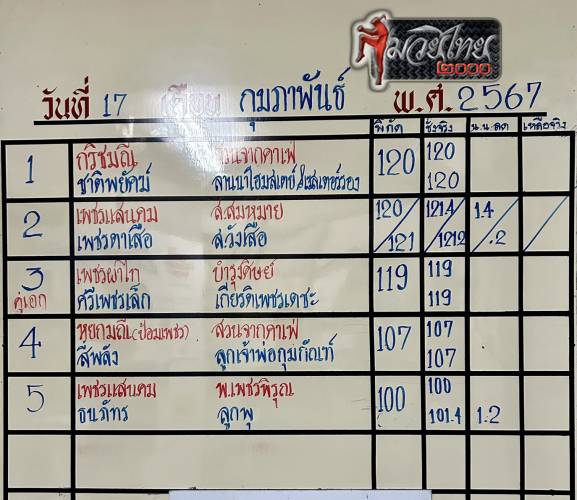 มวยไทย
๒๐๐๐
วันที่ 17 เดือน กุมภาพันธ์ พ.ศ. 2567
พิกัด ชั่งจริง น.น.ลด เหลือจริง
1 กวีชมณี สวนจากคาเฟ่ 120 120
ชาติพยัคฆ์ ลานนาโฮมสเตย์ 120
2 เพชรแสนคม ส.สมหมาย 120 121.4 1.4
เพชรตาเสือ ส.วังเสือ 121 121.2 .2
3 เพชรผาไท บำรุงศิษย์ 119 119
คู่เอก ศรีเพชรเล็ก เกียรติเพชรเดชะ 119
4 หยกมณี (ป้อมเพชร) สวนจากคาเฟ่ 107 107
สีพลัง ลูกเจ้าพ่อกุมภัณฑ์ 107
5 เพชรแสนคม พ.เพชรพิรุณ 100 100
ธนภัทร ลูกพุ 101.4 1.2